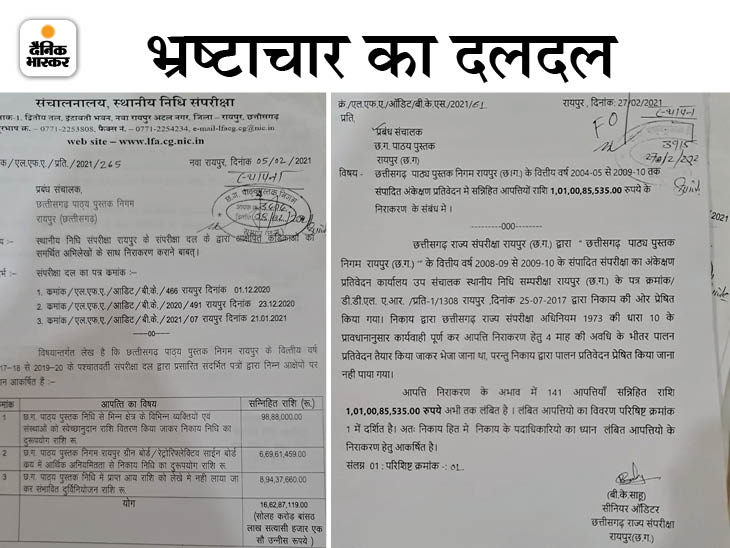 दैनिक
भास्कर
भ्रष्टाचार का दलदल
संचालनालय, स्थानीय निधि संपरीक्षा
द्वितीय तल, इंद्रावती भवन, नवा रायपुर अटल नगर, जिला – रायपुर, छत्तीसगढ़
– 0771-2253808, फैक्स नं. – 0771-2254234, e-mail-lfacg.cg@nic.in
web site – www.lfa.cg.nic.in
/एल.एफ.ए./प्रति./2021/265 नवा रायपुर, दिनांक 05/02/2021
प्रबंध संचालक,
छत्तीसगढ़ पाठ्य पुस्तक निगम
रायपुर (छत्तीसगढ़)
स्थानीय निधि संपरीक्षा रायपुर के संपरीक्षा दल के द्वारा आक्षेपित कंडिकाओं का
समर्थित अभिलेखों के साथ निराकरण कराने बाबत्।
संपरीक्षा दल का पत्र कमांक :
1. कमांक/एल.एफ.ए./आडिट/बी.के./466 रायपुर दिनांक 01.12.2020
2. कमांक/एल.एफ.ए./आडिट/बी.के./2020/491 रायपुर दिनांक 23.12.2020
3. कमांक/एल.एफ.ए./आडिट/बी.के./2021/07 रायपुर दिनांक 21.01.2021
——00——
विषयान्तर्गत लेख है कि छत्तीसगढ़ पाठ्य पुस्तक निगम रायपुर के वित्तीय वर्ष
17-18 से 2019-20 के पश्चातवर्ती संपरीक्षा दल द्वारा प्रसारित संदर्भित पत्रों द्वारा निम्न आक्षेपों पर
आकर्षित हैं :-
आपत्ति का विषय सन्निहित राशि (रू.)
1 छ.ग. पाठय पुस्तक निधि से भिन्न क्षेत्र के विभिन्न व्यक्तियों एवं 98,88,000.00
संस्थाओं को स्वेच्छानुदान राशि वितरण किया जाकर निकाय निधि का
दुरूपयोग राशि रू.
2 छ.ग. पाठय पुस्तक निगम रायपुर ग्रीन बोर्ड/रेट्रोरिफ्लेक्टिव साईन बोर्ड 6,69,61,459.00
कय में आर्थिक अनियमितता से निकाय निधि का दुरूपयोग राशि रू.
3 छ.ग. पाठय पुस्तक निधि में प्राप्त आय राशि को लेखे मे नही लाया जा 8,94,37,660.00
कर संभावित दुर्विनियोजन राशि रू.
योग 16,62,87,119.00
(सोलह करोड़ बांसठ
लाख सत्यासी हजार एक
सौ उन्नीस रूपये )
क्र/एल.एफ.ए./ऑडिट/बी.के.एस./2021/61 रायपुर, दिनांक: 27/02/2021
प्रति,
प्रबंध संचालक
छ.ग. पाठ्य पुस्तक
रायपुर (छ.ग)
FO
3915
विषय - छत्तीसगढ़ पाठ्य पुस्तक निगम रायपुर (छ.ग.) के वित्तीय वर्ष 2004-05 से 2009-10 तक
संपादित अंकेक्षण प्रतिवेदन मे सन्निहित आपत्तियों राशि 1,01,00,85,535.00 रुपये के
निराकरण के संबंध मे ।
--------000--------
छत्तीसगढ़ राज्य संपरीक्षा रायपुर (छ.ग.) द्वारा " छत्तीसगढ़ पाठ्य पुस्तक
निगम रायपुर (छ.ग.) " के वित्तीय वर्ष 2008-09 से 2009-10 के संपादित संपरीक्षा का अंकेक्षण
प्रतिवेदन कार्यालय उप संचालक स्थानीय निधि सम्परीक्षा रायपुर (छ.ग.) के पत्र क्रमांक/
डी.डी.एल ए.आर. /प्रति-1/1308 रायपुर ,दिनांक 25-07-2017 द्वारा निकाय की ओर प्रेषित
किया गया। निकाय द्वारा छत्तीसगढ़ राज्य संपरीक्षा अधिनियम 1973 की धारा 10 के
प्रावधानानुसार कार्यवाही पूर्ण कर आपत्ति निराकरण हेतु 4 माह की अवधि के भीतर पालन
प्रतिवेदन तैयार किया जाकर भेजा जाना था, परन्तु निकाय द्वारा पालन प्रतिवेदन प्रेषित किया जाना
नही पाया गया।
आपत्ति निराकरण के अभाव में 141 आपत्तियाँ सन्निहित राशि
1,01,00,85,535.00 रुपये अभी तक लंबित है । लंबित आपत्तियो का विवरण परिषिष्ट क्रमांक
1 में दर्शित है। अतः निकाय हित मे निकाय के पदाधिकारियो का ध्यान लंबित आपत्तियो के
निराकरण हेतु आकर्षित है।
संलग्न 01 : परिशिष्ट क्रमांक -: 01.
(बी.के.साहू)
सीनियर ऑडिटर
छत्तीसगढ़ राज्य संपरीक्षा
रायपुर(छ.ग.)